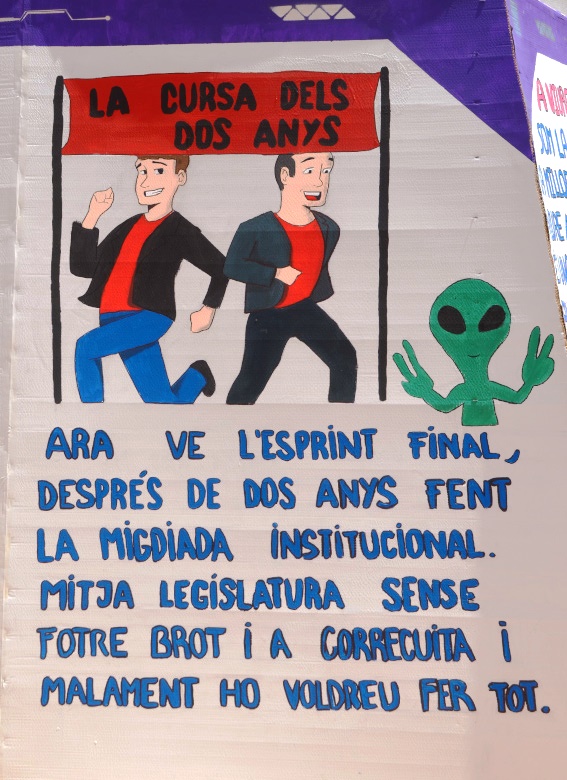 LA CURSA DELS
DOS ANYS
ARA VE L'ESPRINT FINAL,
DESPRÉS DE DOS ANYS FENT
LA MIGDIADA INSTITUCIONAL.
MITJA LEGISLATURA SENSE
FOTRE BROT I A CORRECUITA I
MALAMENT HO VOLDREU FER TOT.
SOM LA